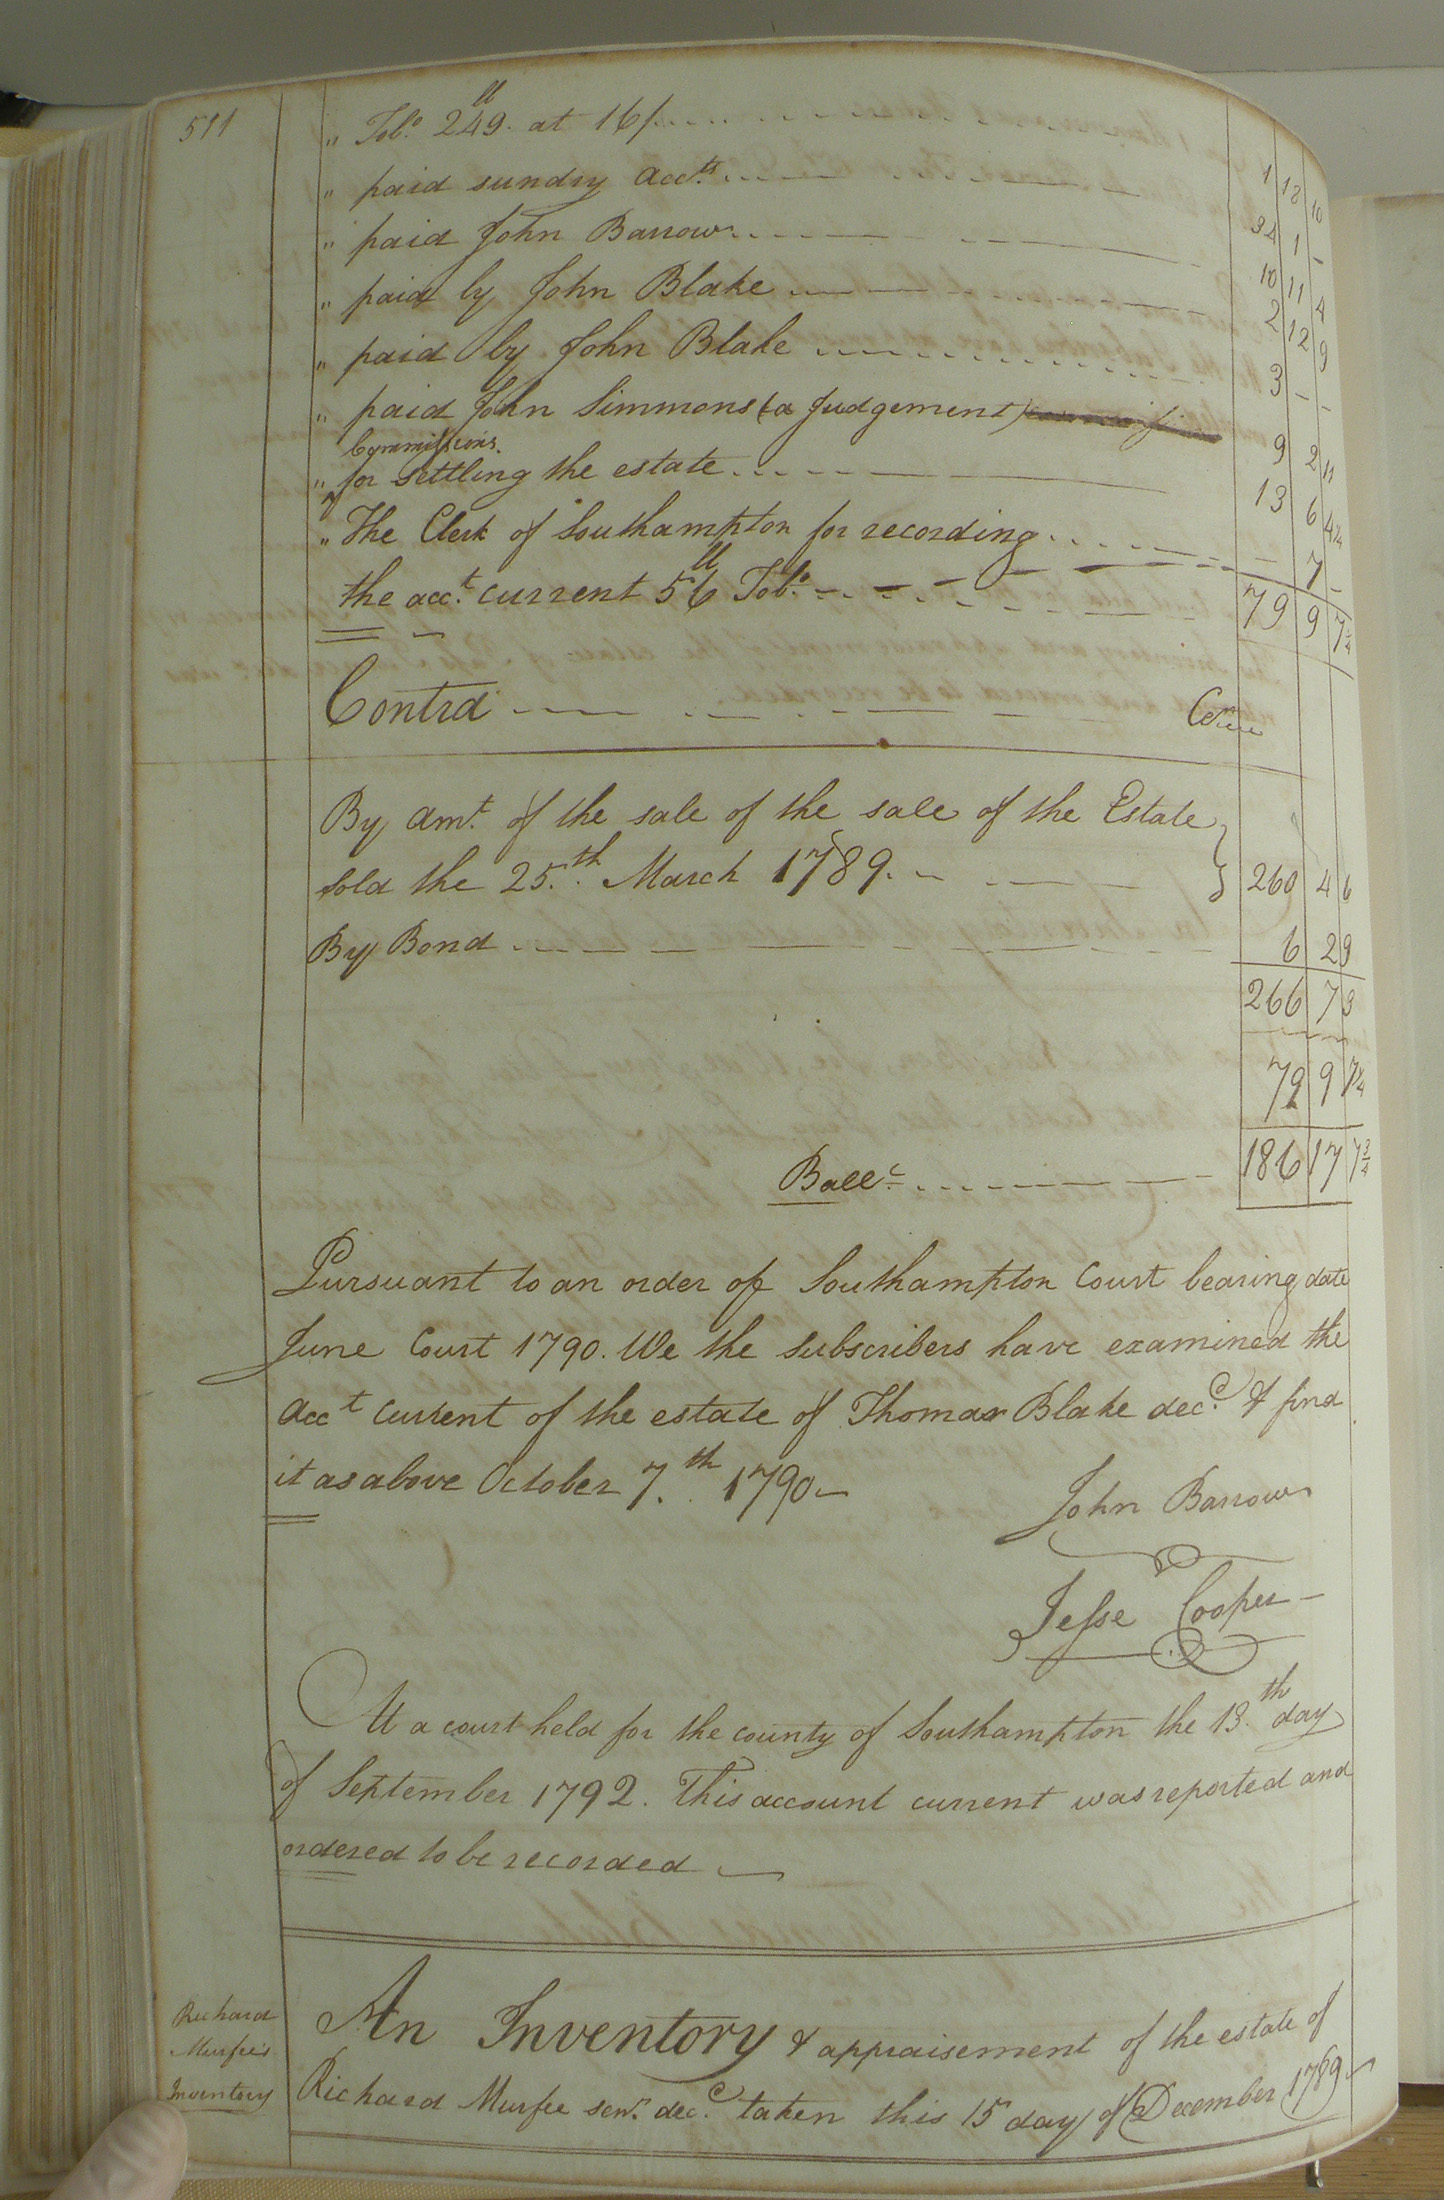 511
" Tobo. 249 ll. at 16/.
1 18 10
" paid sundry Accts.
34 1 -
" paid John Barrow
10 11 4
" paid by John Blake
2 12 9
" paid by John Blake
3 - -
" paid John Simmons (a Judgement)
9 2 11
Commissions
" for settling the estate
13 6 4 1/4
" The Clerk of Southampton for recording
- 7 -
the acct. current 56 ll Tobo.
79 9 7 1/4
Contra
By Amt. of the sale of the sale of the Estate
sold the 25th. March 1789. 260 4 6
By Bond 6 2 9
266 7 3
79 9 7 1/4
Ballc. 186 17 7 3/4
Pursuant to an order of Southampton Court bearing date
June Court 1790. We the Subscribers have examined the
Acct current of the estate of Thomas Blake decd. & find
it as above October 7th. 1790
John Barrow
Jesse Cooper
At a court held for the county of Southampton the 13th. day
of September 1792. This account current was reported and
ordered to be recorded
Richard
Murfee's
Inventory
An Inventory & appraisement of the estate of
Richard Murfee senr. decd. taken this 15 day of December 1789